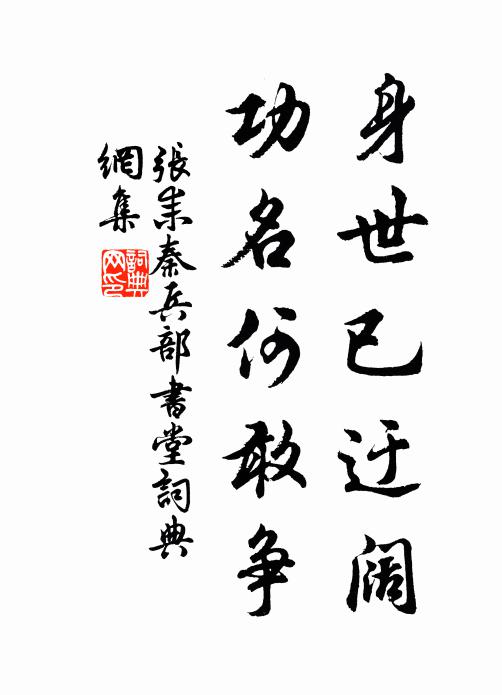 身世已迂阔
功名何敢争
張耒秦兵部書堂詞典
網集
詞典
网印